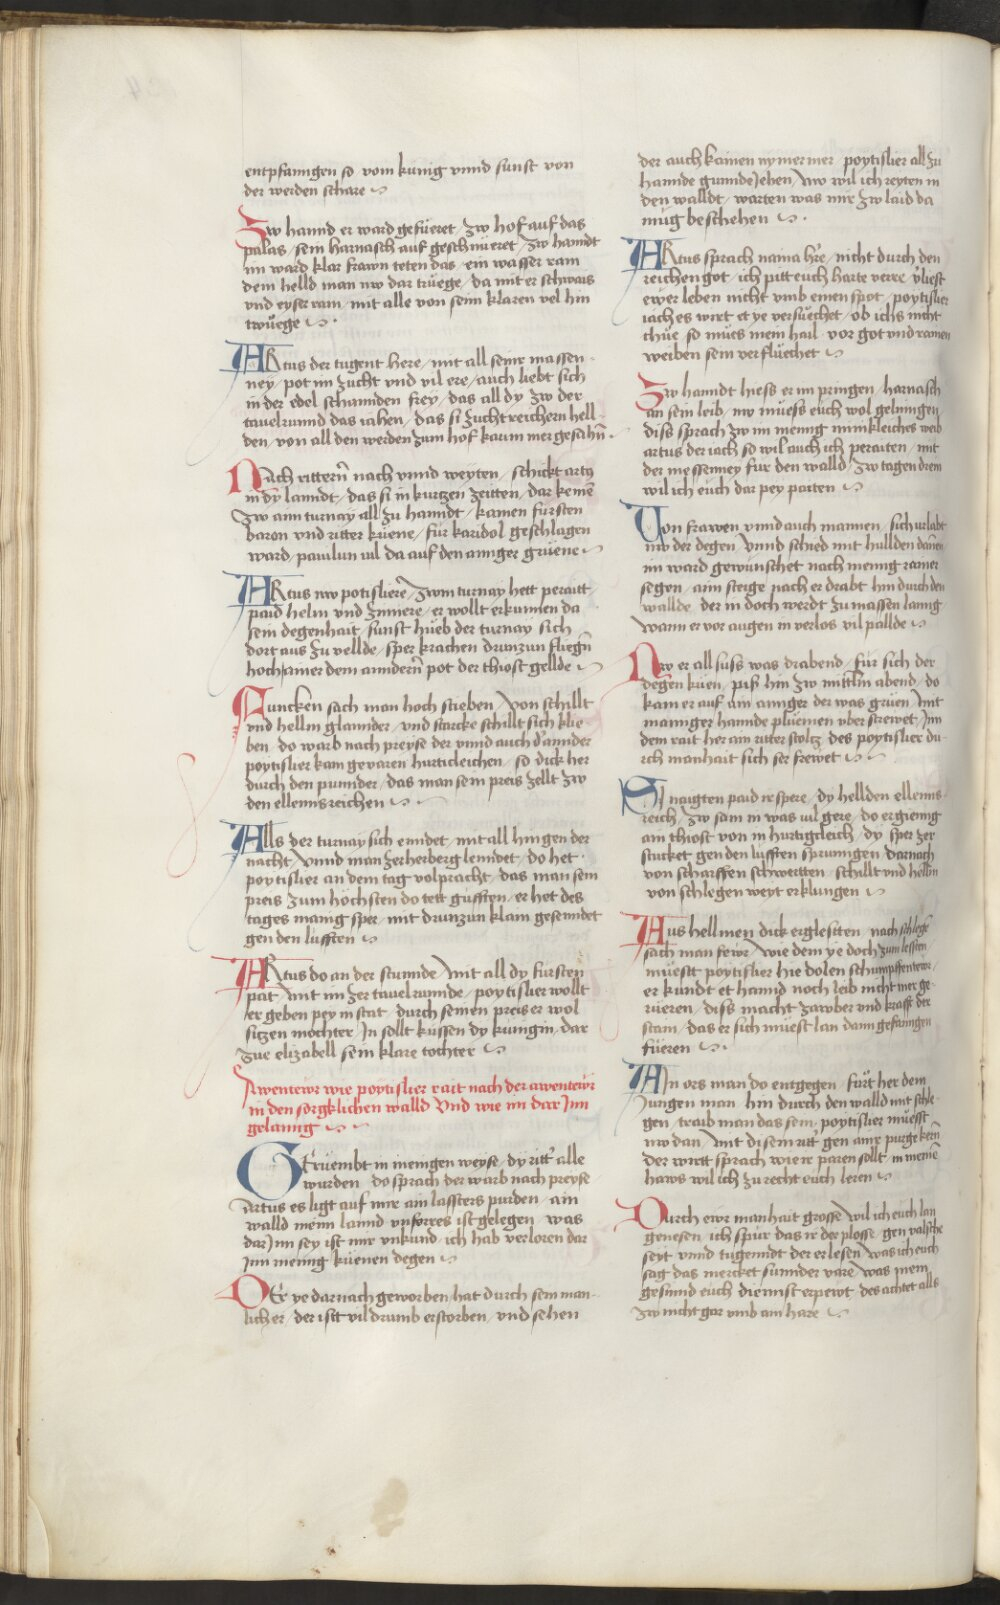 entpfanngen so vom kunig vnnd sunst von
der werden schare
Zw hannd er ward gefüeret / zw hof auf das
palas / sein harnasch auf geschnüeret / zw hanndt
im ward klar frawn teten das / ein wasser ram
dem helld man nw dar trüege / da mit er schwais
vnd eyser ram / mit alle von seim klaren vel hin
twüege
ARtus der tugent here / mit all seinr massen
ney / pot im zucht vnd vil ere / auch liebt sich
in der edel schannden frey / das all dy zw der
tauelrunnd das iahen / das si zucht reichern hell
den / von all den werden zum hof kaum mer gesahn̄
NAch rittern̄ nach vnnd weyten / schickt artus
in dy lanndt / das si in kurtzen zeitten / dar kemē
zw aim turnay all zu hanndt / kamen fürsten
baron vnd ritter küene / für karidol geschlagen
ward / pauilun vil da auf den annger grüene
ARtus nw potislierē zwm turnay hett peraitt
paid helm vnd zimiere / er wollt erkunnen da
sein degenhait / sunst hüeb der turnay sich
dort aus zu vellde / sper krachen drunzun fliegn̄
hoch / ainer dem anndern̄ pot der thiost gellde
Funcken sach man hoch stieben / von schillt
vnd hellm glannder / vnd starcke schillt sich klie
ben / do warb nach preyse der vnnd auch d'annder
poytislier kam gevaren hurticleichen / so dick her
durch den punnder / das man sein preis zellt zw
den ellennsreichen
Alls der turnay sich enndet / mit all hin gen der
nacht / vnnd man zer herberg lenndet / do het
poytislier an dem tag volpracht / das man sein
preis zum höchsten do tett güfften / er het des
tages manig sper / mit drunzun klain gesenndet
gen den lüfften
ARtus do an der stunnde / mit all dy fürsten
pat / mit im zer tauelrunnde / poytislier wollt
er geben pey im stat / durch seinen preis er wol
sitzen möchte / in sollt küssen dy künigin / dar
zue elizabell sein klare tochter
Awentewr wie poytislier rait nach der awentewr
in den sorgklichen walld Vnd wie im dar Inn
gelanng
GErüembt in menigen weyse / dy ritt' alle
wurden / do sprach der warb nach preyse
artus es ligt auf mir ain lassters purden / ain
walld meim lannd vnferres ist gelegen / was
dar Inn sey ist mir vnkund / ich hab verloren dar
Inn menig küenen degen
DEr ye darnach geworben / hat durch sein man
licher / der istt vil drumb erstorben / vnd sehen
der auch kainen nymer mer / poytislier all zu
hannde gunnde iehen / nw wil ich reyten in
den walldt / warten was mir zw laid da
müg beschehen
ARtus sprach nain a hr̄e / nicht durch den
reichen got / ich pitt euch harte verre / v'liest
ewer leben nicht vmb einen spot / poytislier
iach es wirt et ye versüechet / ob ichs nicht
thüe so mües mein hail / vor got vnd rainen
weiben sein verflüechet
Zw hanndt hiess er im pringen / harnasch
an sein leib / nw müess euch wol gelinngen
diss sprach zw im menig minnkleiches weib
artus der iach so wil auch ich peraiten / mit
der messenney für den walld / zw tagen drein
wil ich euch dar pey paiten
Von frawen vnnd auch mannen / sich vrlabt
nw der degen / vnnd schied mit hullden dannen
im ward gewünschet nach menig rainer
segen / ain steige nach er drabt hin durch den
wallde / der in doch werdt zu massen lanng
wann er vor augen in verlos vil pallde
Nw er all suss was drabend / für sich der
degen küen / piss hin zw mittin abend / do
kam er auf ain annger der was grüen / mit
manniger hannde plüemen vber strewet / im
dem rait her ain ritter stoltz / des poytislier du
rch manhait sich ser frewet
SI naigten paid ir spere / dy hellden ellenns
reich / zw sam in was vil gere / do ergienng
ain thiost von in hurtigcleich / dy sper zer
stucket gen den lufften sprunngen / darnach
von scharffen schwertten / schillt vnd hellm
von schlegen weyt erklungen
Aus hellmen dick erglesiten / nach schlege
sach man fewr / wie dem ye doch zum lessten
müestt poytislier hie dolen schumpffentewr
er kundt et hannd noch leib nicht mer ge
rüeren / diss macht zawber vnd krafft der
stain / das er sich müest lan dann gefanngen
füeren
AIn ors man do entgegen / fürt her dem
Jungen man / hin durch den walld mit schle
gen / traib man das sein / poytislier müesst
nw dan / mit disem ritt' gen ainr purge kern̄
der wirtt sprach wie ir paren sollt / in meinē
haws wil ich zu recht euch leren
Durch ewr manhait grosse / wil ich euch lan
genesen / ich spür das ir der plosse / gen valsche
seyt / vnnd tugenndt der erlesen / was ich euch
sag das mercket sunnder vare / was mein
gesinnd euch diennst erpewt / des achtet alls
zw nicht gar vmb ain hare